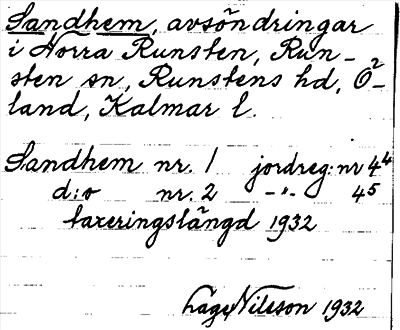 Sandhem, avsöndringar
i Norra Runsten, Run-
sten sn, Runstens hd, Ö-
land, Kalmar l.
Sandhem nr. 1 jordreg: nr 4⁴
d:o nr. 2 -"- 4⁵
taxeringslängd 1932
Nileson 1932